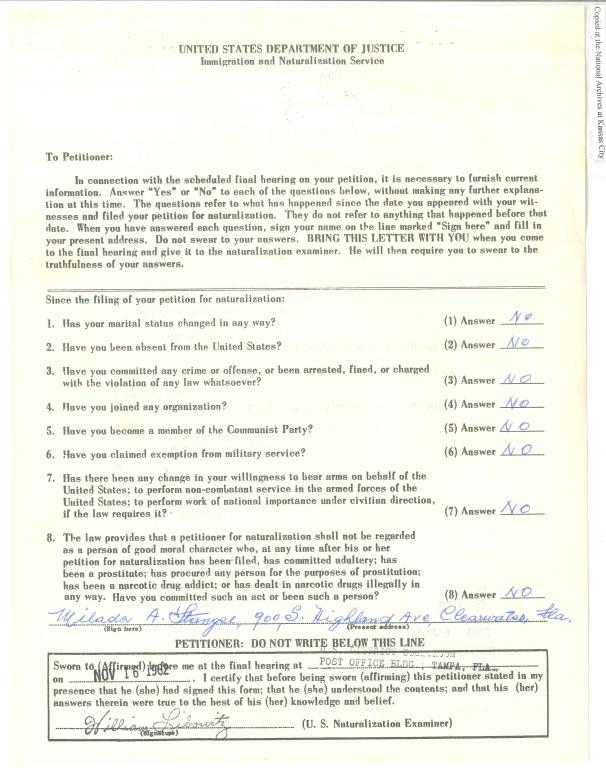 Copied at the National Archives at Kansas City
UNITED STATES DEPARTMENT OF JUSTICE
Immigration and Naturalization Service
To Petitioner:
In connection with the scheduled final hearing on your petition, it is necessary to furnish current
information. Answer "Yes" or "No" to each of the questions below, without making any further explana-
tion at this time. The questions refer to what has happened since the date you appeared with your wit-
nesses and filed your petition for naturalization. They do not refer to anything that happened before that
date. When you have answered each question, sign your name on the line marked "Sign here" and fill in
your present address. Do not swear to your answers. BRING THIS LETTER WITH YOU when you come
to the final hearing and give it to the naturalization examiner. He will then require you to swear to the
truthfulness of your answers.
Since the filing of your petition for naturalization:
1. Has your marital status changed in any way? (1) Answer No
2. Have you been absent from the United States? (2) Answer No
3. Have you committed any crime or offense, or been arrested, fined, or charged
with the violation of any law whatsoever? (3) Answer NO
4. Have you joined any organization? (4) Answer NO
5. Have you become a member of the Communist Party? (5) Answer NO
6. Have you claimed exemption from military service? (6) Answer NO
7. Has there been any change in your willingness to bear arms on behalf of the
United States; to perform non-combatant service in the armed forces of the
United States; to perform work of national importance under civilian direction,
if the law requires it? (7) Answer NO
8. The law provides that a petitioner for naturalization shall not be regarded
as a person of good moral character who, at any time after his or her
petition for naturalization has been filed, has committed adultery; has
been a prostitute; has procured any person for the purposes of prostitution;
has been a narcotic drug addict; or has dealt in narcotic drugs illegally in
any way. Have you committed such an act or been such a person? (8) Answer NO
Milada A. 900 S. Highland Ave, Clearwater, Fla.
(Sign here) (Present address)
PETITIONER: DO NOT WRITE BELOW THIS LINE
Sworn to (Affirmed) before me at the final hearing at POST OFFICE BLDG., TAMPA, FLA.
on NOV 16 1962. I certify that before being sworn (affirming) this petitioner stated in my
presence that he (she) had signed this form; that he (she) understood the contents; and that his (her)
answers therein were true to the best of his (her) knowledge and belief.
William Libowitz (U. S. Naturalization Examiner)
(Signature)